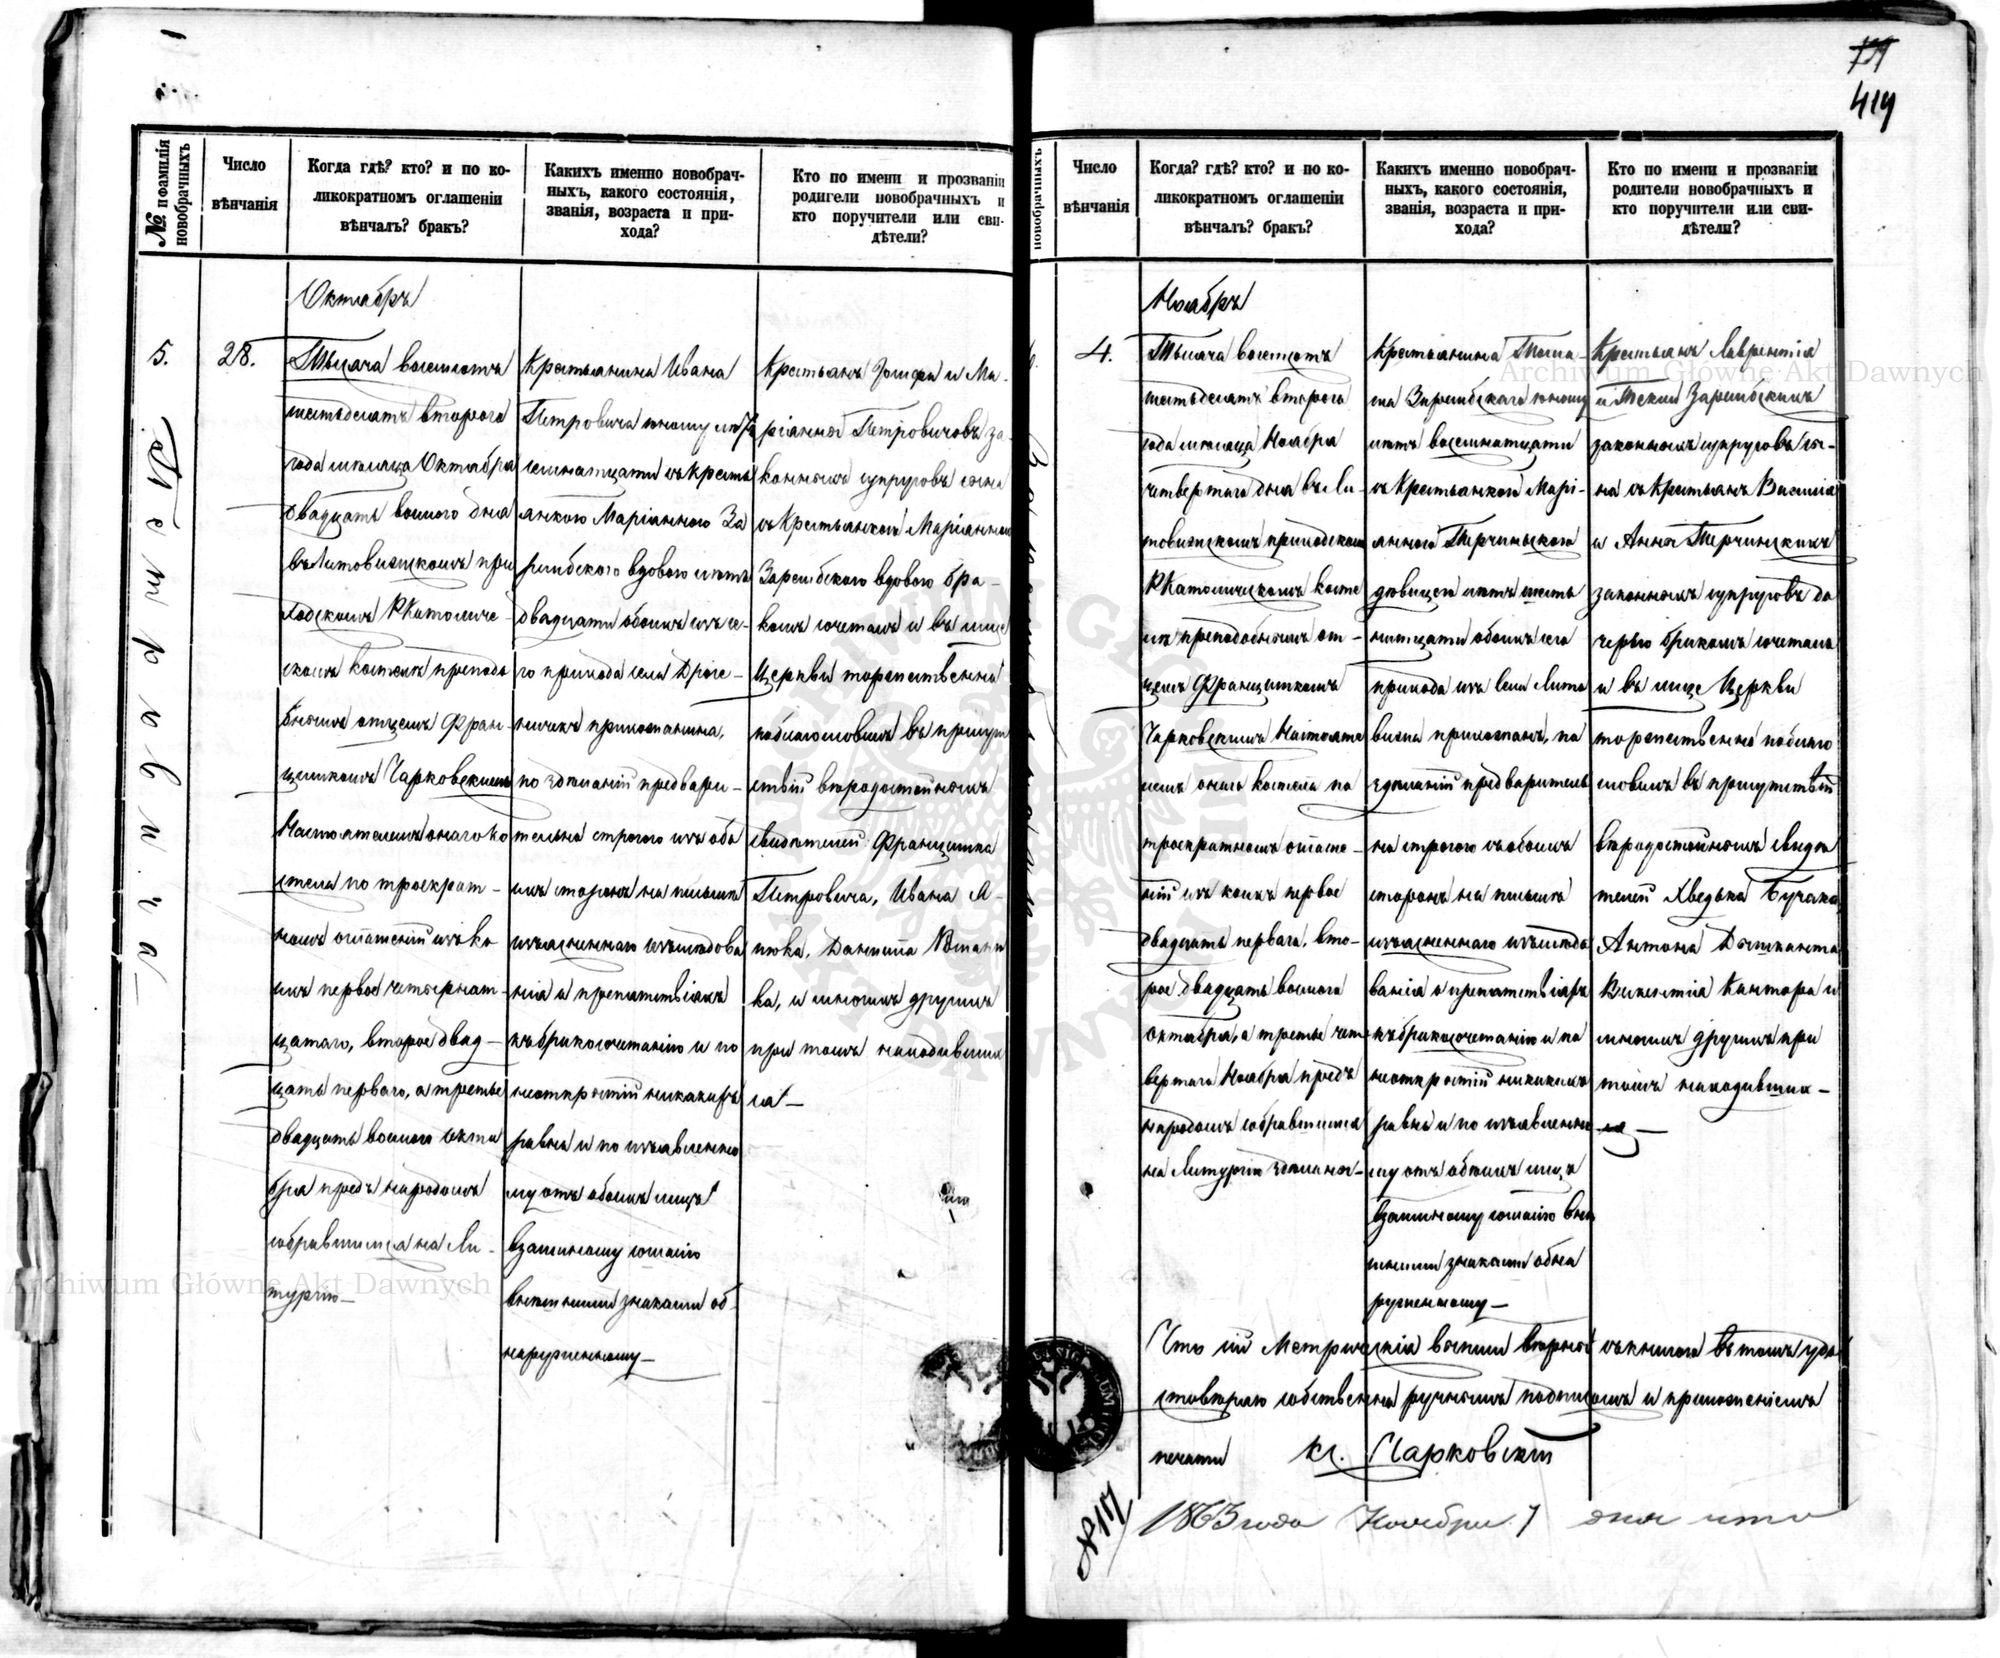 419
№ и фамилія новобрачныхъ
Число вѣнчанія
Когда гдѣ? кто? и по ко-
ликократномъ оглашеніи
вѣнчалъ? бракъ?
Какихъ именно новобрач-
ныхъ, какого состоянія,
званія, возраста и при-
хода?
Кто по имени и прозванію
родители новобрачныхъ и
кто поручители или сви-
дѣтели?
5.
Петровича
28.
Октабръ
Тысяча восемсотъ
шестьдесятъ второго
года мѣсяца Октабра
двадцать восмого дна
въ Литовижскомъ при
ходскомъ РКатоличе-
скомъ костелѣ преподо
бнымъ отцемъ Фран-
цишкомъ Чарковскимъ
Настоятелемъ онаго ко
стела по троекрат-
номъ оглашеніи изъ ко
ихъ первое четырнат-
цатаго, второе двад-
цать перваго, а третье
двадцать восмого Окта
бра предъ народомъ
собравшимся на Ли-
тургію—
Крестьянина Ивана
Петровича юношу лѣтъ
семнатцати съ Кресть
анкою Маріанною За
рембскою вдовою лѣтъ
двадцати обоихъ изъ се-
го прихода села
прихожанина,
по зделаніи предвари-
тельно строгого изъ обо
ихъ сторонъ на письмѣ
изъясненнаго изслѣдова
ніа о препатствіахъ
къ бракосочетанію и по
неоткрытіи никакихъ
равно и по изъявленно
му отъ обоихъ лицъ
взаимному согласію
внѣшними знаками об-
наруженному—
Крестьянъ Іозифа и Ма-
ріанны Петровичовъ за-
конныхъ супруговъ сына
съ Крестьанкою Маріанною
Зарембскою вдовою бра-
комъ сочеталъ и въ лице
Церкви торжественно
поблагословилъ въ присут
ствіи вѣродостойныхъ
свидѣтелей Франциска
Петровича, Ивана
и многихъ другихъ
при томъ находивших
са—
Число вѣнчанія
Когда? гдѣ? кто? и по ко-
ликократномъ оглашеніи
вѣнчалъ? бракъ?
Какихъ именно новобрач-
ныхъ, какого состоянія,
званія, возраста и при-
хода?
Кто по имени и прозванію
родители новобрачныхъ и
кто поручители или сви-
дѣтели?
4.
Ноабръ
Тысяча восемсотъ
шестьдесятъ второго
года мѣсяца Ноабра
четвертого дна въ Ли-
товижскомъ приходскомъ
РКатолическомъ косте
лѣ преподобнымъ от-
цемъ Францишкомъ
Чарковскимъ Настояте
лемъ онаго костела по
троекратномъ оглаше-
ніи изъ коихъ первое
двадцать перваго, вто-
рое двадцать восмого
Октабра, а третье чет
вертаго Ноабра предъ
народомъ собравшимся
на Литургію зделаны—
Крестьанина Тома-
ша Зарембского юношу
лѣтъ восемнатцати
съ Крестьанкою Марі-
анною
дѣвицею лѣтъ шест
натцати обоихъ сего
прихода изъ села Лито
вижа прихожанъ, по
зделаніи предварительно
строгого съ обоихъ
сторонъ на письмѣ
изъясненнаго изслѣдо
ваніа о препатствіахъ
къ бракосочетанію и по
неоткрытіи никакихъ
равно и по изъявленно
му отъ обоихъ лицъ
взаимному согласію внѣ
шними знаками обна
руженному—
Крестьанъ Лаврентіа
и Теклы Зарембскихъ
законныхъ супруговъ сы-
на съ Крестьанъ Василіа
и Анны
законныхъ супруговъ до
черью бракомъ сочеталъ
и въ лице Церкви
торжественно поблаго
словилъ въ присутствіи
вѣродостойныхъ свидѣ
телей Хведька
Антона
Викентіа Кантора и
многихъ другихъ при
томъ находивших—
са—
Что сіи Метрическія выписи вѣрны съ книгою въ томъ удо
стовѣраю собственноручнымъ подписомъ и приложеніемъ
печати Кс. Чарковскій
№ 117
1863 года Ноабра 7 дня
Archiwum Główne Akt Dawnych
Archiwum Główne Akt Dawnych